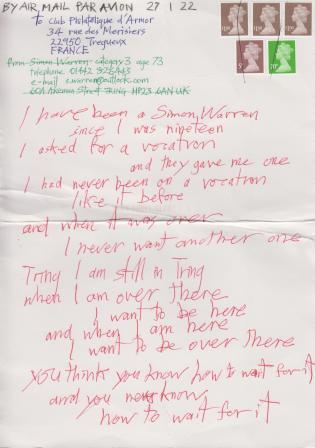 BY AIR MAIL PAR AVION 27 1 22
to Club Philatélique d'Armor
34 rue des Merisiers
22950 Trégueux
FRANCE
from Simon Warren category 3 age 73
telephone 01442
e-mail
Street TRING HP23 UK
I have been a Simon Warren
since I was nineteen
I asked for a vocation
and they gave me one
I had never been on a vocation
like it before
and when it was over
I never want another one
Tring I am still in Tring
when I am over there
I want to be here
and when I am here
I want to be over there
you think you know how to wait for it
and you never know
how to wait for it